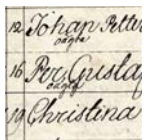 12 Johan Petter
oägta
16 Per Gustaf
oägta
19 Christina